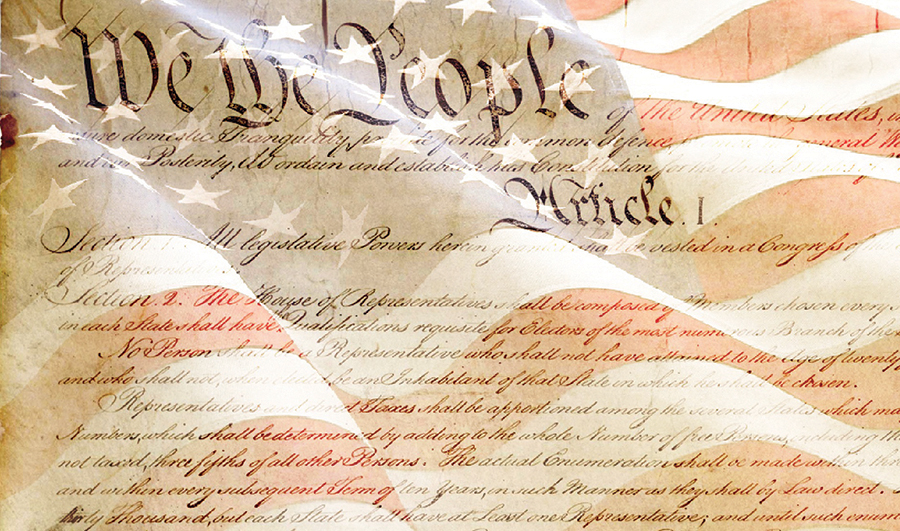 We the People
of the United States, in
sure domestic Tranquility, provide for the common defence, general We
and our Posterity, do ordain and establish this Constitution for the United States of
Article. I.
Section. 1. All legislative Powers herein granted shall be vested in a Congress of the
of Representatives.
Section. 2. The House of Representatives shall be composed of Members chosen every s
in each State shall have Qualifications requisite for Electors of the most numerous Branch of the
No Person shall be a Representative who shall not have attained to the Age of twenty
and who shall not, when elected, be an Inhabitant of that State in which he shall be chosen.
Representatives and direct Taxes shall be apportioned among the several States which may
Numbers, which shall be determined by adding to the whole Number of free Persons, including tho
not taxed, three fifths of all other Persons. The actual Enumeration shall be made within thr
and within every subsequent Term of ten Years, in such Manner as they shall by Law direct.
thirty Thousand, but each State shall have at Least one Representative; and until such enum